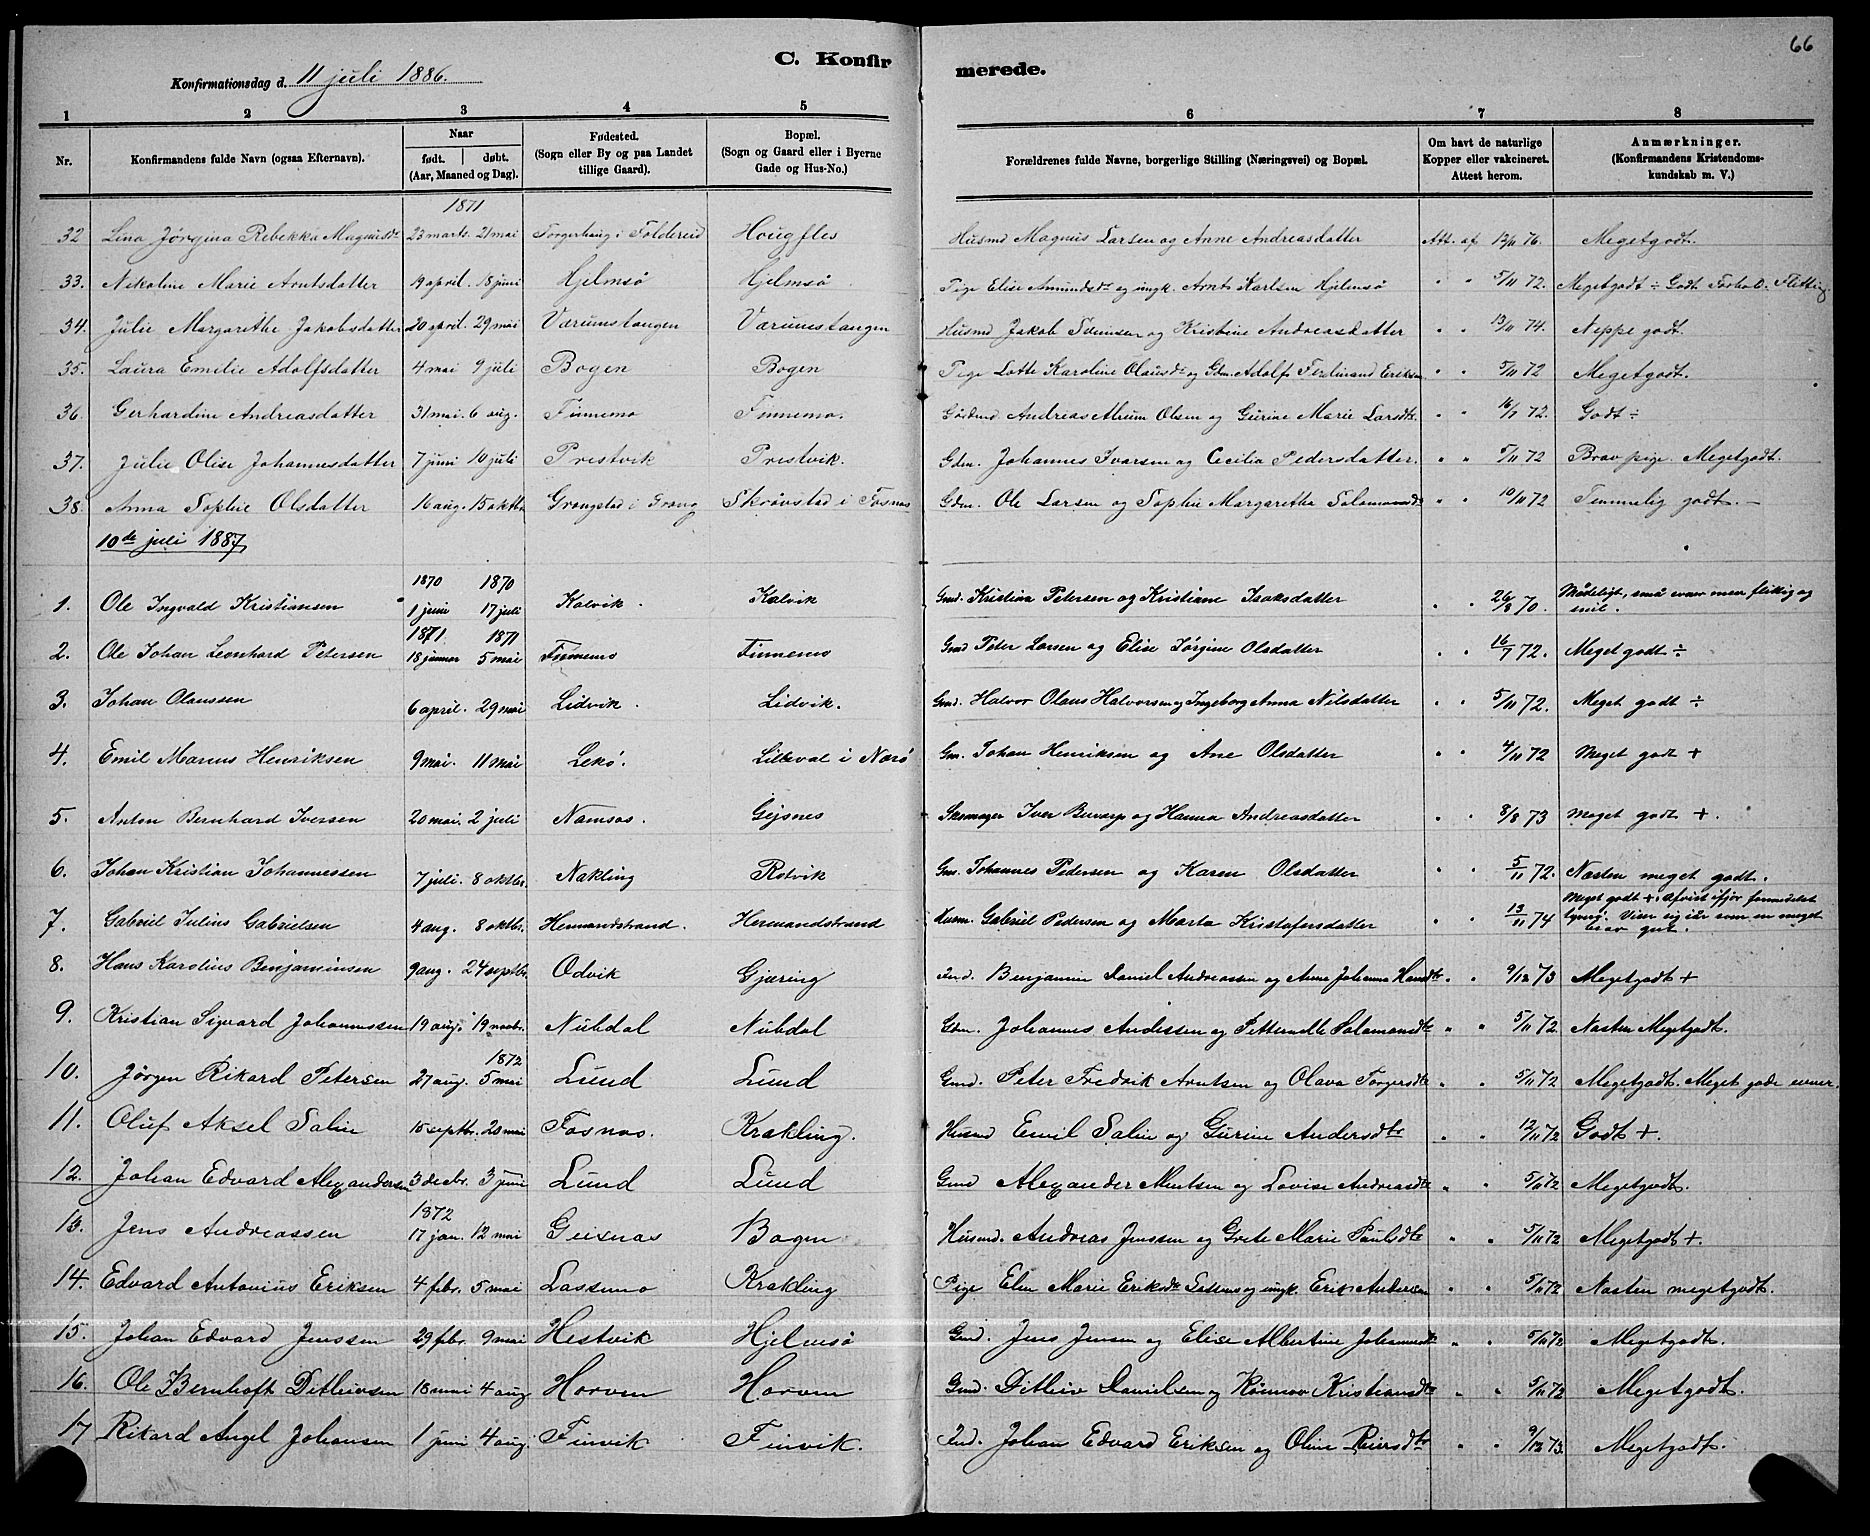 66
C. Konfirmerede.
Konfirmationsdag d. 11 juli 1886.
1 2 3 4 5 6 7 8
Nr. Konfirmandens fulde Navn (ogsaa Efternavn). Naar født. døbt. (Aar, Maaned og Dag). Fødested. (Sogn eller By og paa Landet tillige Gaard). Bopæl. (Sogn og Gaard eller i Byerne Gade og Hus-No.) Forældrenes fulde Navne, borgerlige Stilling (Næringsvei) og Bopæl. Om havt de naturlige Kopper eller vakcineret. Attest herom. Anmærkninger. (Konfirmandens Kristendomskundskab m. V.)
1871
32 Lina Jørgina Rebekka Magnusdtr 23 marts 21 mai Torgerhaug i Foldereid Hougfles Husmd Magnus Larsen og Anne Andreasdatter Att. af 12/11 76. Megetgodt.
33. Nikoline Marie Arntsdatter 19 april. 18 juni Hjelmsø Hjelmsø Pige Elise Amundsdr og ungk. Arnt Karlsen Hjelmsø " " 5/11 72. Megetgodt ÷ Godt Forhold. Flittig
34. Julie Margarethe Jakobsdatter 20 april. 29 mai Værumstangen Værumstangen Husmd Jakob Simonsen og Kristine Andreasdatter " " 13/11 74. Neppe godt.
35. Laura Emilie Adolfsdatter 4 mai 9 juli Bogen Bogen Pige Lotte Karoline Olausdr og Gdm. Adolf Ferdinand Eriksen " " 5/11 72 Megetgodt.
36. Gerhardine Andreasdatter 31 mai. 6 aug. Finnemo Finnemo. Andreas Olsen og Gurine Marie Larsdtr. " " 16/7 72. Godt ÷
37. Julie Olise Johannesdatter 7 juni 10 juli Prestvik Prestvik. Gdm. Johannes Ivarsen og Cecilia Pedersdatter. " " 5/11 72 Brav pige. Megetgodt.
38. Anna Sophie Olsdatter 16 aug. 15 oktbr Grongstad i Grong Skrøvstad i Fosnes Gdm. Ole Larsen og Sophie Margaretha Salomonsdr " " 10/11 72 Temmelig godt. —
10de juli 1887
1870 1870
1. Ole Ingvald Kristiansen 1 juni 17 juli Kalvik. Kalvik Gmd. Kristian Petersen og Kristiane Isaksdatter " " 26/8 70. Mådeligt, små evner men flittig og snil.
1871. 1871
2. Ole Johan Leonhard Petersen 18 januar 5 mai Finnemo Finnemo Gmd Peter Larsen og Elise Jørgine Olsdatter " " 16/7 72. Meget godt ÷
3. Johan Olaussen 6 april. 29 mai Lidvik. Lidvik. Gmd. Halvor Olaus Halvorsen og Ingeborg Anna Nilsdatter " " 5/11 72. Meget godt ÷
4. Emil Marius Henriksen 9 mai. 11 mai Lekø. Lilleval i Nærø Gm. Johan Henriksen og Ane Olsdatter " " 4/11 72 Meget godt +
5. Anton Bernhard Iversen 20 mai. 2 juli Namsos. Gejsnes Skomager Iver og Hanna Andreasdatter " " 8/8 73 Meget godt +.
6. Johan Kristian Johannessen 7 juli. 8 oktbr. Nakling Rotvik Gm. Johannes Pedersen og Karen Olsdatter " " 5/11 72. Næsten meget godt.
7. Gabriel Julius Gabrielsen 4 aug. 8 oktbr. Hermandstrand. Hermandstrand Husm. Gabriel Pedersen og Marta Kristofersdatter " " 13/11 74 Meget godt +. Afvist ifjor formedelst tyveri. Viser sig iår som en meget brav gut.
8. Hans Karolius Benjaminsen 9 aug. 24 septbr. Odvik Gjæring Ind. Benjamin Daniel Andreassen og Anne Johanna Hansdtr " " 9/12 73 Megetgodt +
9. Kristian Sigvard Johannessen 19 aug. 19 novbr. Nubdal Nubdal Gdm. Johannes Anderssen og Petternelle Salamonsdtr " " 5/11 72. Næsten Megetgodt.
1872
10. Jørgen Rikard Petersen 27 aug. 5 mai Lund Lund Gmd. Peter Fredrik Arntsen og Olava Torgersdtr " " 5/11 72 Megetgodt. Meget gode evner.
11. Oluf Aksel Salin 15 septbr. 20 mai Fosnes. Krakling. Husmd Emil Salin og Gurine Andersdtr " " 12/11 72 Godt +.
12. Johan Edvard Alexandersen 3 decbr. 3 juni Lund Lund Gmd Alexander Mentsen og Lovise Andreasdtr " " 5/11 72 Megetgodt.
1872
13. Jens Andreassen 17 jan. 12 mai Geisnes Bogen Husmd. Andreas Jenssen og Grete Marie Paulsdtr " " 5/11 72 Megetgodt +.
14. Edvard Antonius Eriksen 4 febr. 5 mai Lassemo Krakling Pige Elen Marie Eriksdtr Lassemo og ungk. Erik Andersen " " 5/11 72 Næsten megetgodt.
15. Johan Edvard Jenssen 29 febr. 9 mai Hestvik Hjelmsø Gmd. Jens Jensen og Elise Albertine Johannesdtr " " 5/11 72 Megetgodt.
16. Ole Bernhoft Ditlevsen 18 mai 4 aug Horven Horven Gmd. Ditlev Danielsen og Rønnov Kristiansdtr " " 5/11 72 Megetgodt.
17 Rikard Angel Johansen 1 juni 4 aug. Finvik Finvik. Ind. Johan Edvard Eriksen og Oline Reiersdtr " " 9/12 73. Megetgodt.